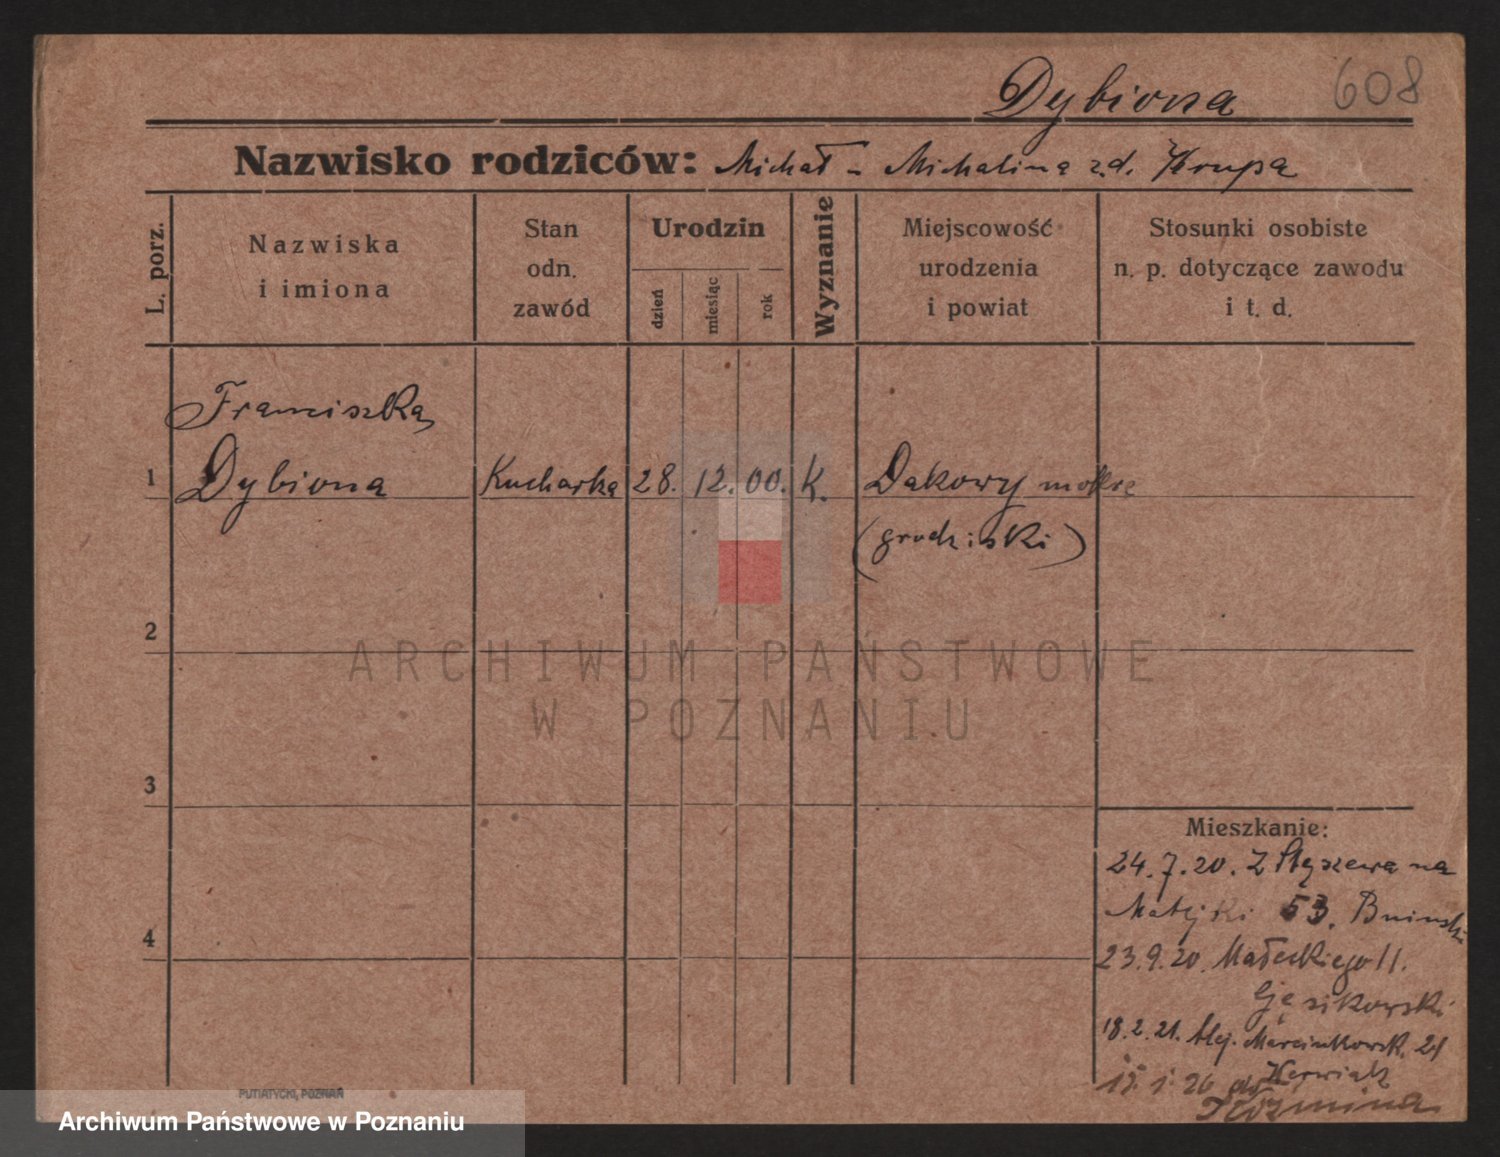 Dybiona 608
Nazwisko rodziców: Michał - Michalina z.d. Krupa
L. porz.
Nazwiska
i imiona
Stan
odn.
zawód
Urodzin
dzień
miesiąc
rok
Wyznanie
Miejscowość
urodzenia
i powiat
Stosunki osobiste
n. p. dotyczące zawodu
i t. d.
Franciszka
1 Dybiona Kucharka 28. 12. 00. K. Dakowy mokre
(grodziski)
2
ARCHIWUM PAŃSTWOWE
W POZNANIU
3
Mieszkanie:
24.7.20. Z Stęszewa na
Matejki 53. Bniński
4
23.9.20. Małeckiego 11.
Gąsikowski
18.2.21. Alej. Marcinkowsk. 21
1. 26 do
Koźmina
PUTIATYCKI, POZNAŃ
Archiwum Państwowe w Poznaniu